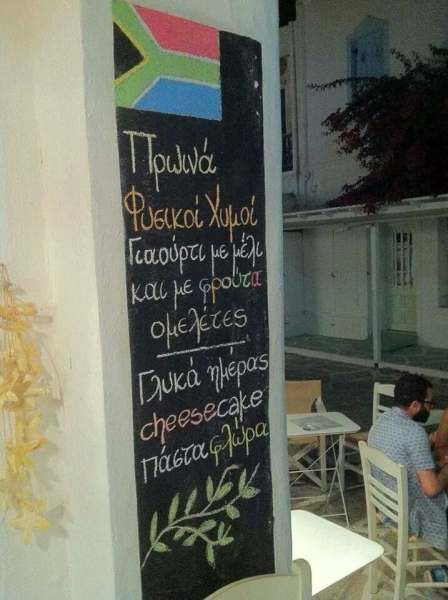 Πρωινά
Φυσικοί Χυμοί
Γιαούρτι με μέλι
και με φρούτα
ομελέτες
Γλυκά ημέρας
cheesecake
πάστα φλώρα